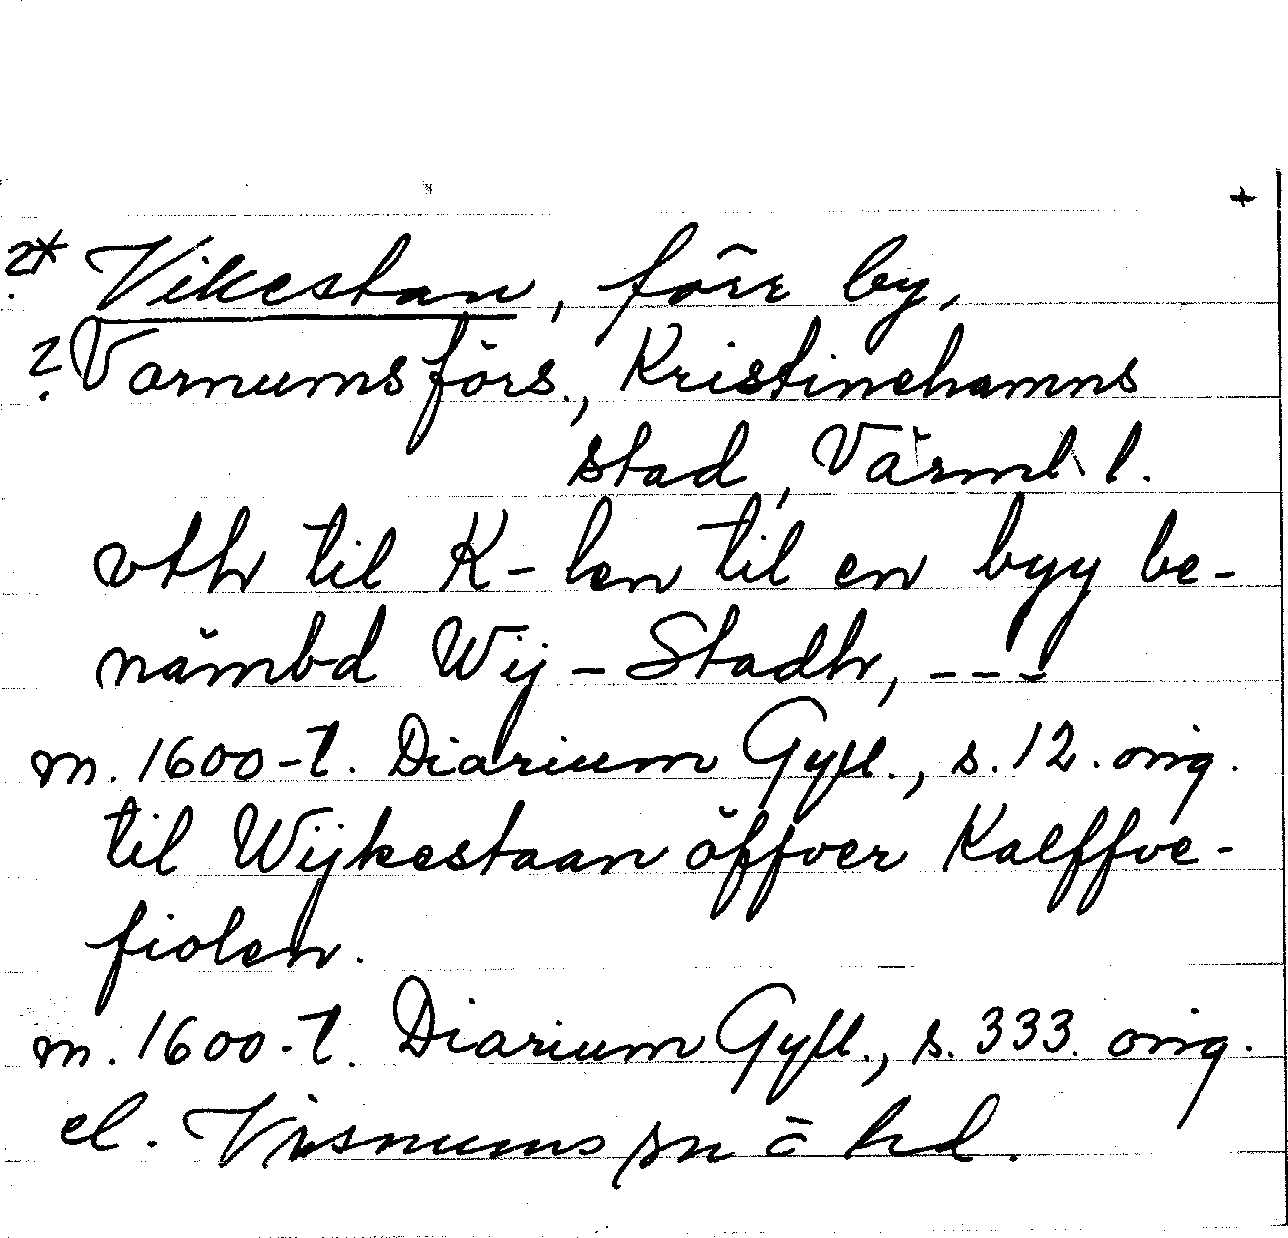 +
?* Vikestan, förr by,
? Varnums förs., Kristinehamns
stad, Värml. l.
vthr til K-len til en byy be-
nämbd Wij-Stadh, ---
m. 1600-t. Diarium Gyll., s. 12. orig.
til Wijkestaan öffver Kalffve-
fiolen.
m. 1600-t. Diarium Gyll., s. 333. orig.
el. Visnums sn o hd.